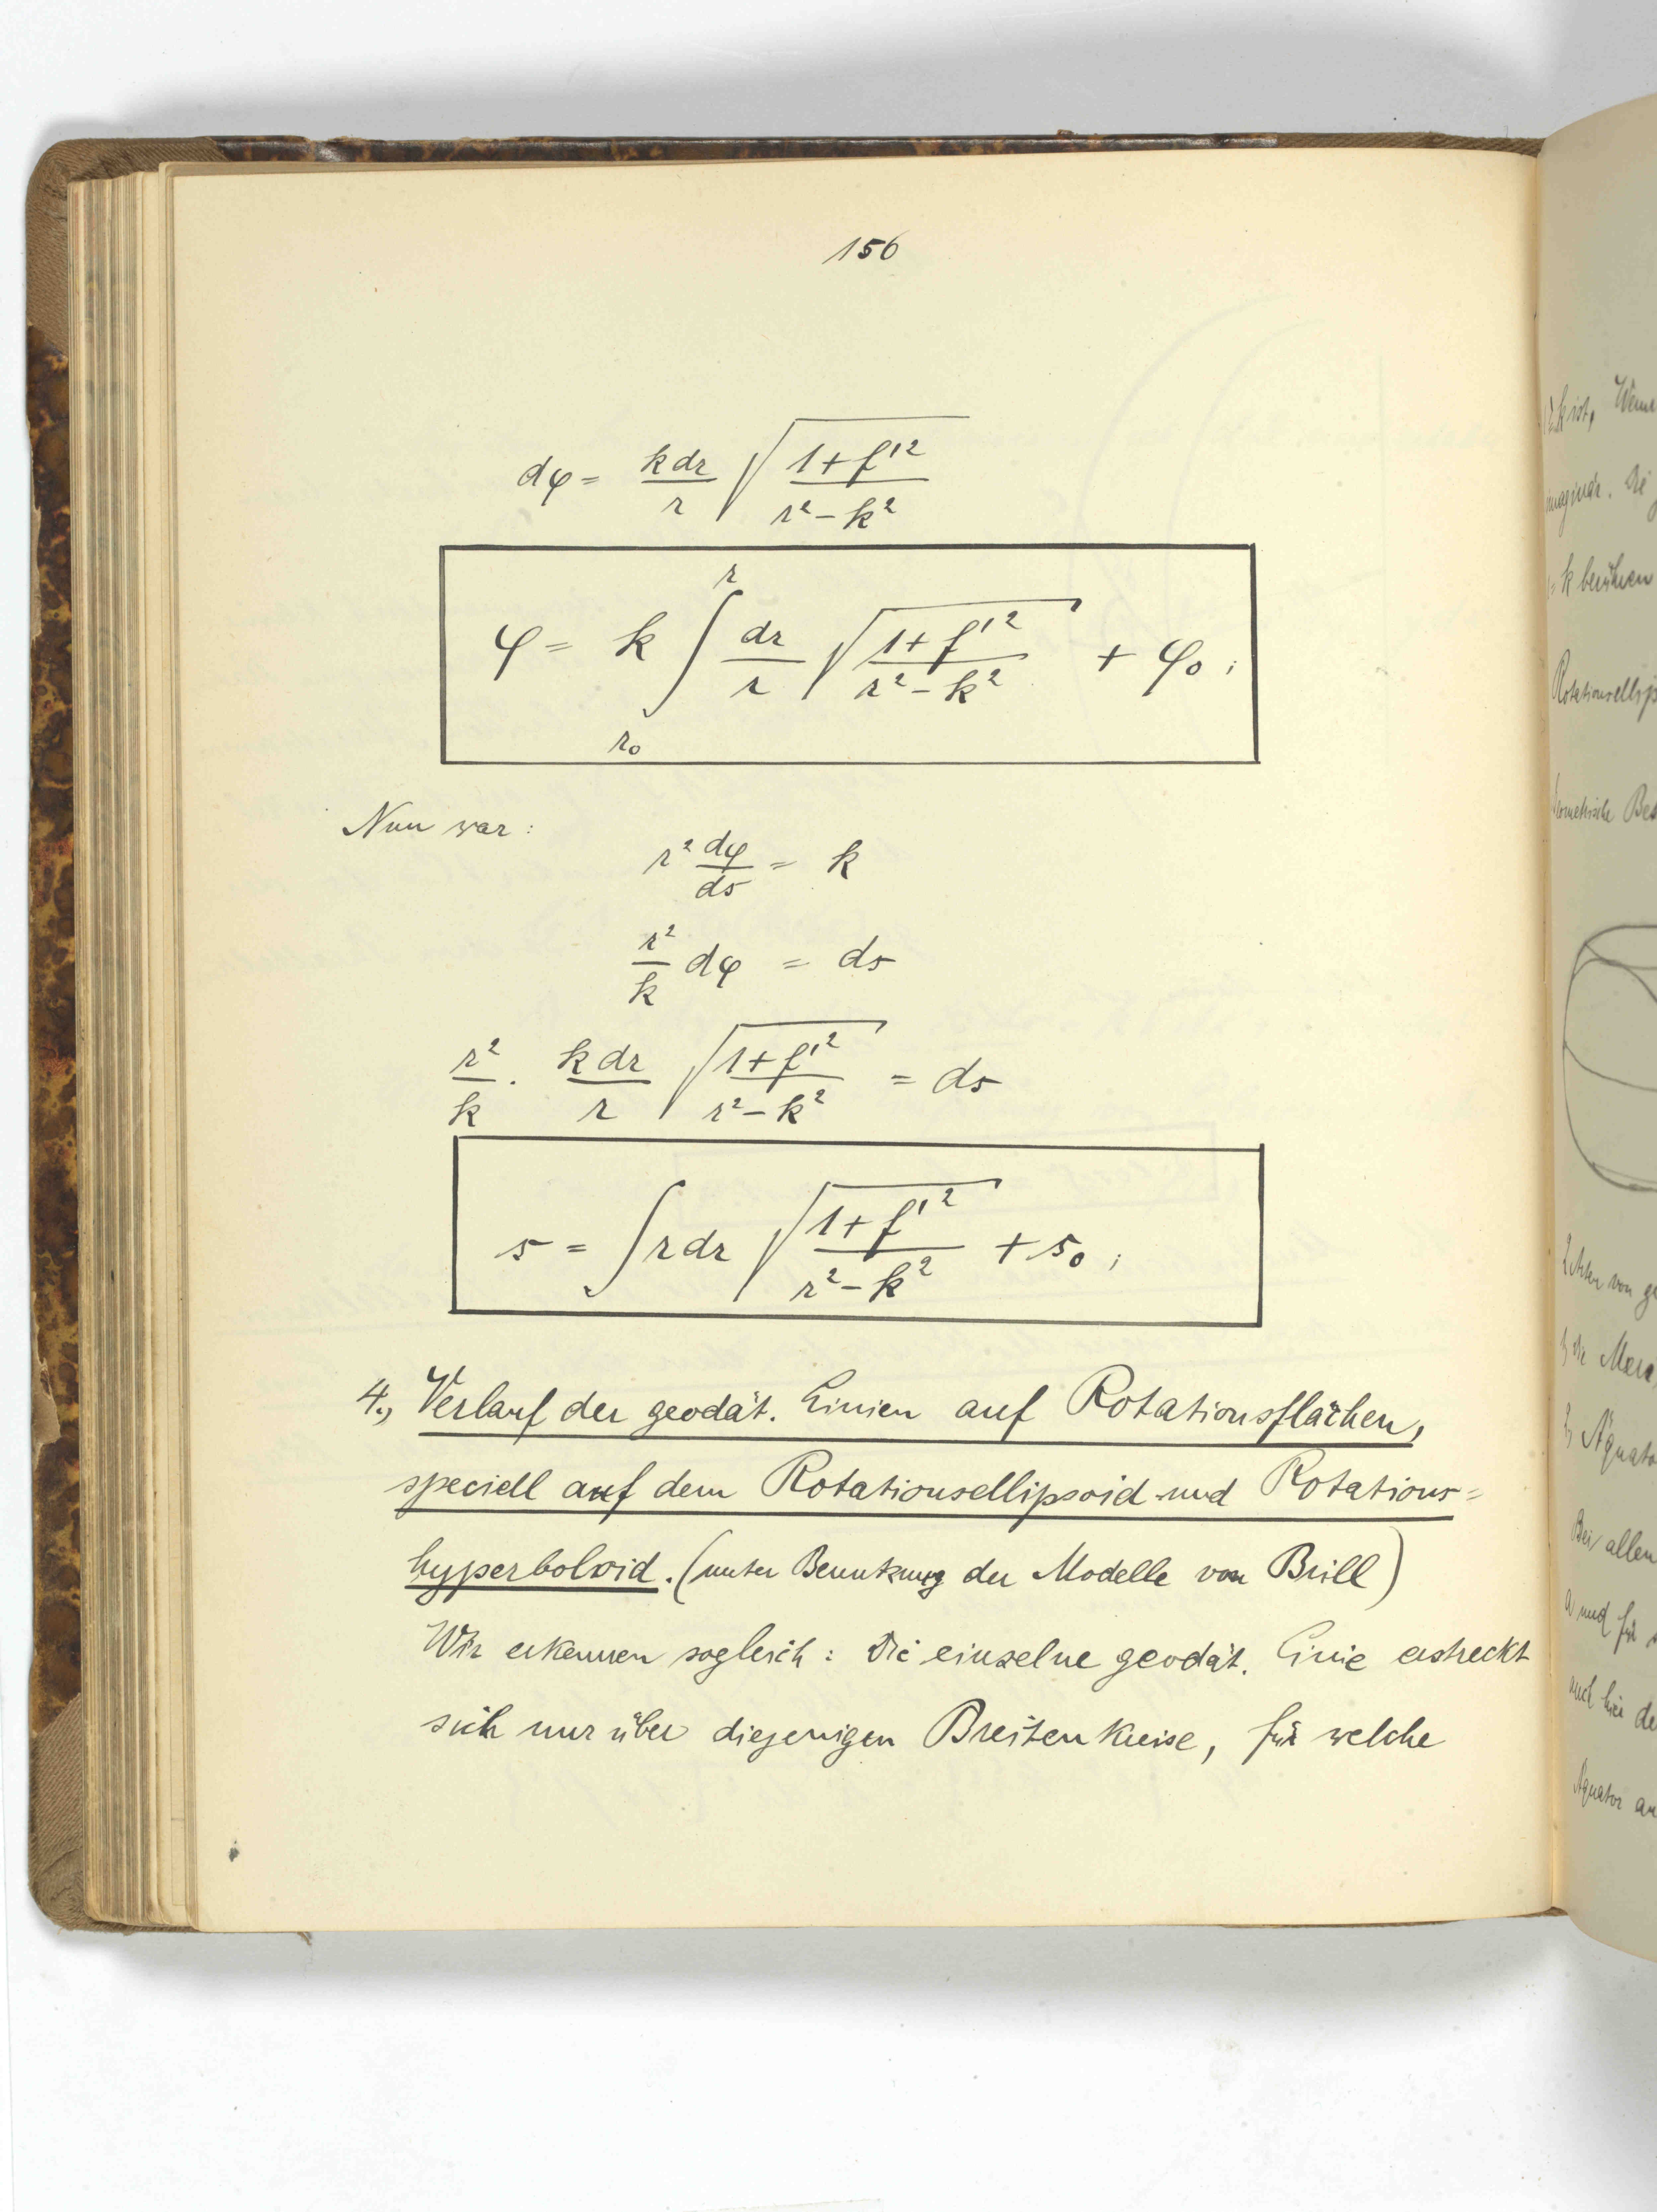 156
dφ = k dr / r √( 1+f'² / r²-k² )
φ = k ∫_{r₀}^{r} dr / r √( 1+f'² / r²-k² ) + φ₀ ;
Nun war:
r² dφ/ds = k
r²/k dφ = ds
r²/k · k dr / r √( 1+f'² / r²-k² ) = ds
s = ∫ r dr √( 1+f'² / r²-k² ) + s₀ ;
4., Verlauf der geodät. Linien auf Rotationsflächen,
speciell auf dem Rotationsellipsoid und Rotations=
hyperboloid. (unter Benutzung der Modelle von Brill)
Wir erkennen sogleich: Die einzelne geodät. Linie erstreckt
sich nur über diejenigen Breitenkreise, für welche
k ist,
imaginär. Die
= k berühren
allen
Äquator